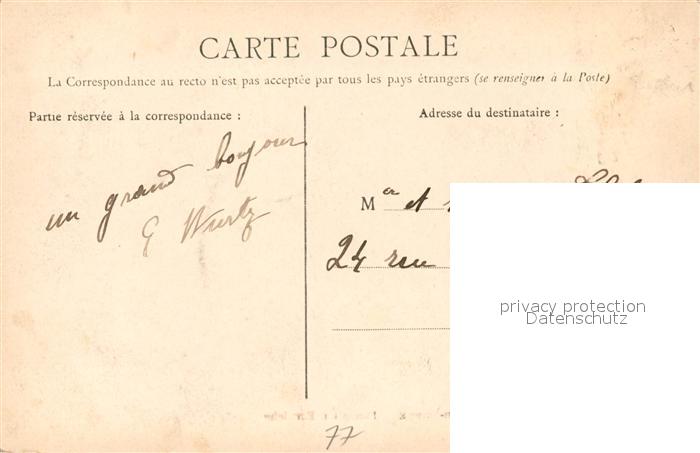 CARTE POSTALE
La Correspondance au recto n'est pas acceptée par tous les pays étrangers (se renseigner à la Poste)
Partie réservée à la correspondance :
un grand bonjour
G Wurtz
Adresse du destinataire :
M et
24 rue
privacy protection
Datenschutz
77